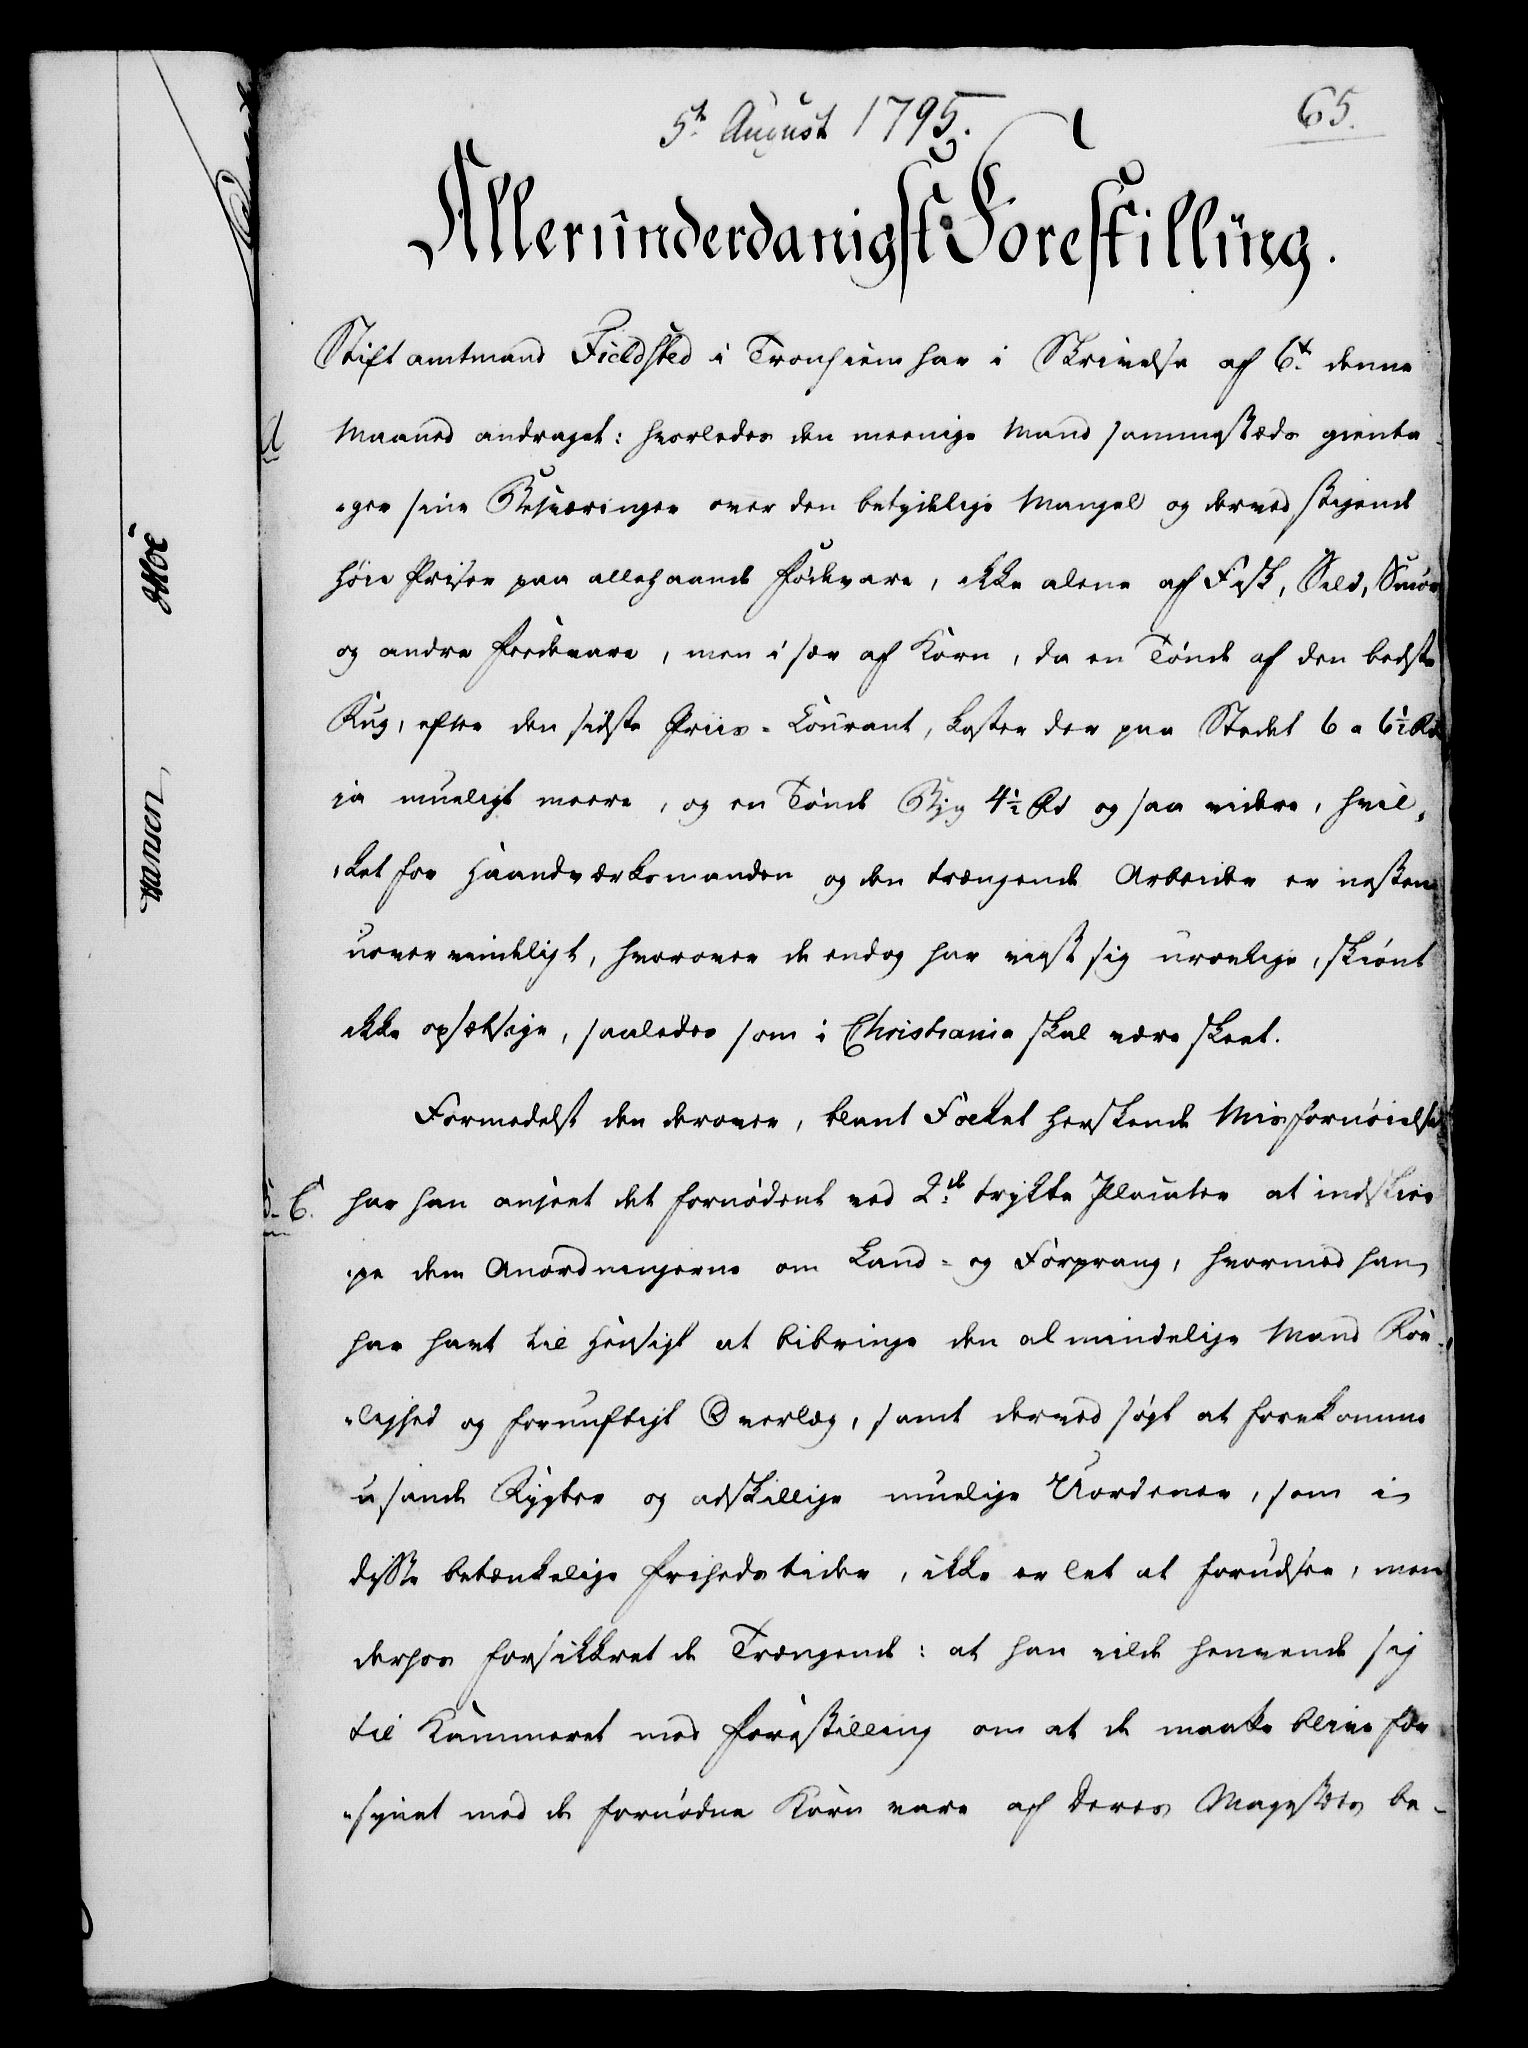 5te August 1795.
65.
Allerunderdanigst Forestilling.
Stiftamtmand Fieldsted i Tronhiem har i Skrivelse af 6t denne
A
Maaned andraget: hvorledes den meenige Mand sammestæds gienta-
-ger sine Besværinger over den betydelige Mangel og derved stigende
høie Priser paa allehaande Fødevare, ikke alene af Fisk, Sild, Smør
og andre Fedevare, men i sær af Korn, da en Tønde af den bedste
Rug, efter den sidste Priis-Courant, koster der paa Stedet 6 a 6½ Rd
ja mueligt meere, og en Tønde Byg 4½ Rd og saa videre, hvil-
-ket for Haandværksmanden og den trængende Arbeider er nesten
uovervindeligt, hvorover de endog har viist sig urolige, skiønt
ikke opsætsige, saaledes som i Christiania skal være skeet.
Formedelst den derover, blant Folket herskende Misfornøielse
C.
har han anseet det fornødent ved 2de trykte Placater at indskiær-
-pe dem Anordningerne om Land- og Forprang, hvormed han
har havt til Hensigt at bibringe den almindelige Mand Roe-
-lighed og fornuftigt Overlæg, samt derved søgt at forekomme
usande Rygter og adskillige muelige Uordener, som i
disse betænkelige Friheds tider, ikke er let at forudsee, men
derhos forsikkret de Trængende: at han vilde henvende sig
til Kammeret med Forestilling om at de maatte blive for-
-synet med de fornødne Korn vare af Deres Magestets be-
Hoë
Hansen